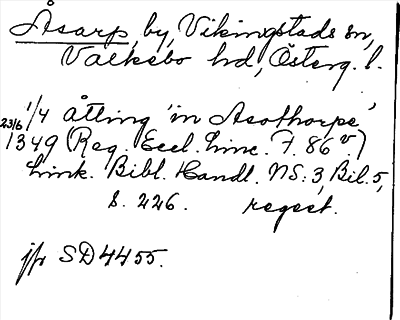 Åsarp, by, Vikingstads sn,
Valkebo hd, Österg. l.
1/4 åtting 'in Asothorpe'
23/6 1349 (Reg. Eccl. Linc. F. 86 v)
Link. Bibl. Handl. NS: 3, Bil. 5,
s. 226. regest.
jfr SD 4455.